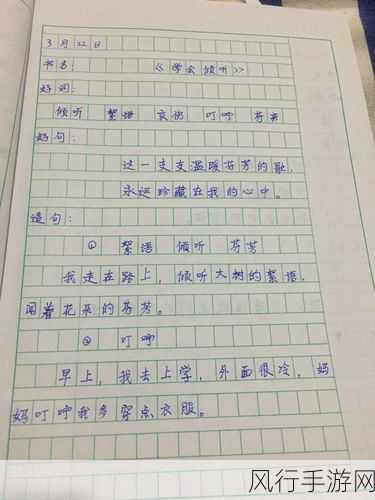 3月22日
书名：《学会倾听》
好词：
倾听 絮语 哀伤 叮咛 芬芳
好句：
这一支支温暖芬芳的歌，
永远珍藏在我的心中。
造句：
① 絮语 倾听 芬芳
我走在路上，倾听大树的絮语，
闻着花朵的芬芳。
② 叮咛
早上，我去上学，外面很冷，妈
妈叮咛我多穿点衣服。
风行手游网